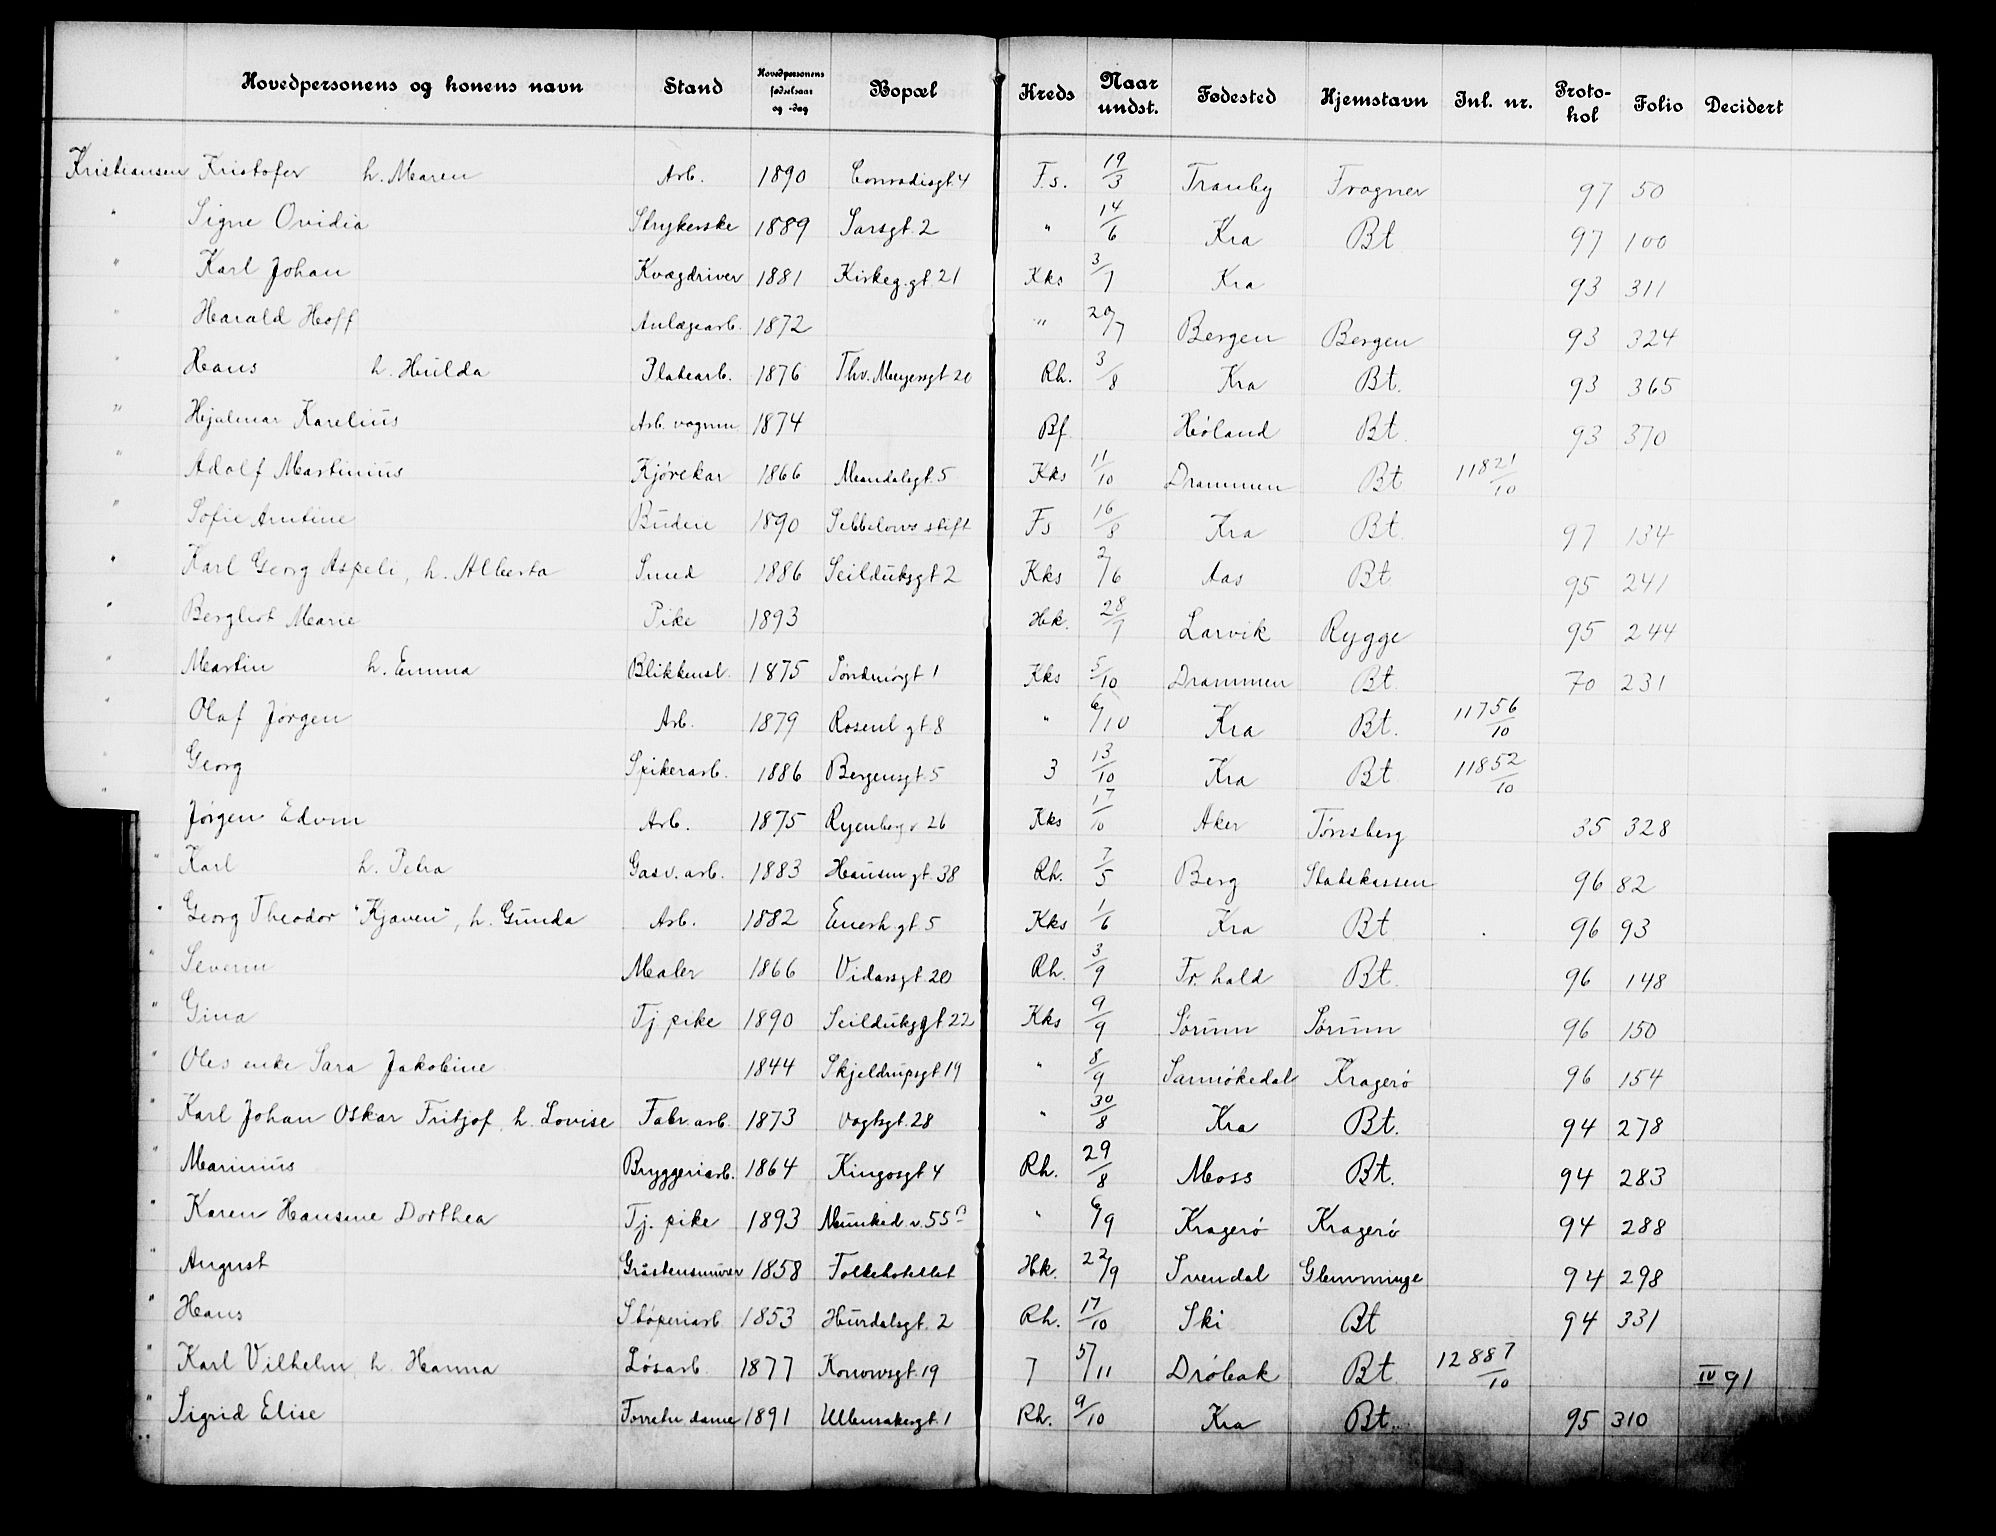 Hovedpersonens og konens navn Stand Hovedpersonens fødselsaar og -dag Bopæl Kreds Naar undst. Fødested Hjemstavn Inl. nr. Protokol Folio Decidert
Kristiansen Kristofer h. Maren Arb. 1890 Conradisgt. 4 F.s. 19/3 Tranby Frogner 97 50
" Signe Ovidia Strykerske 1889 Sarsgt. 2 " 14/6 Kra Bt 97 100
" Karl Johan Kvægdriver 1881 Kirkeg.gt. 21 Kks 3/7 Kra 93 311
" Harald Hoff Anlægsarb. 1872 " 20/7 Bergen Bergen 93 324
" Hans h. Hulda Platearb. 1876 Thv. Meyersgt 20 Rh. 3/8 Kra Bt. 93 365
" Hjalmar Karelius Arb. vognm 1874 Bf. Høland Bt. 93 370
" Adolf Martinius Kjørekar 1866 Mandalsgt. 5 Kks 11/10 Drammen Bt 11821/10
" Sofie Amtine Budeie 1890 Sebbelows stift Fs 16/8 Kra Bt. 97 134
" Karl Georg Aspeli, h. Alberta Smed 1886 Seilduksgt 2 Kks 2/6 Aas Bt. 95 241
" Bergliot Marie Pike 1893 Hk. 28/7 Larvik Rygge 95 244
" Martin h. Emma Blikkensl. 1875 Søndmørgt 1 Kks 5/10 Drammen Bt. 70 231
" Olaf Jørgen Arb. 1879 Rosenl gt. 8 " 6/10 Kra Bt. 11756/10
" Georg Spikerarb. 1886 Bergensgt. 5 3 13/10 Kra Bt 11852/10
" Jørgen Edvin Arb. 1875 Ryenberg v 26 Kks 17/10 Aker Tønsberg 35 328
" Karl h. Petra Gasv. arb. 1883 Hausm gt. 38 Rh. 7/5 Berg Statskassen 96 82
" Georg Theodor "Kjaven", h. Gunda Arb. 1882 Enerh gt. 5 Kks 1/6 Kra Bt 96 93
" Severin Maler 1866 Vidarsgt. 20 Rh. 3/9 Fr. hald Bt. 96 148
" Gina Tj. pike 1890 Seilduksgt. 22 Kks 9/9 Sørum Sørum 96 150
" Oles enke Sara Jakobine 1844 Skjeldrupsgt 19 " 8/9 Sannøkedal Kragerø 96 154
" Karl Johan Oskar Fritjof, h. Lovise Fabr. arb. 1873 Vogtsgt. 28 " 30/8 Kra Bt. 94 278
" Marinius Bryggeriarb. 1864 Kingosgt 4 Rh. 29/8 Moss Bt. 94 283
" Karen Hansine Dorthea Tj. pike 1893 Munked v. 55 B " 6/9 Kragerø Kragerø 94 288
" August Gråstensmurer 1858 Folkehotellet Hk. 22/9 Svendal Glemminge 94 298
" Hans Støperiarb 1853 Hurdalsgt. 2 Rh. 17/10 Ski Bt 94 331
" Karl Vilhelm, h. Hanna Løsarb. 1877 Konowsgt. 19 7 5/11 Drøbak Bt. 12887/10 IV 91
" Sigrid Elise Forretn dame 1891 Ullensakergt. 1 Rh. 9/10 Kra Bt. 95 310